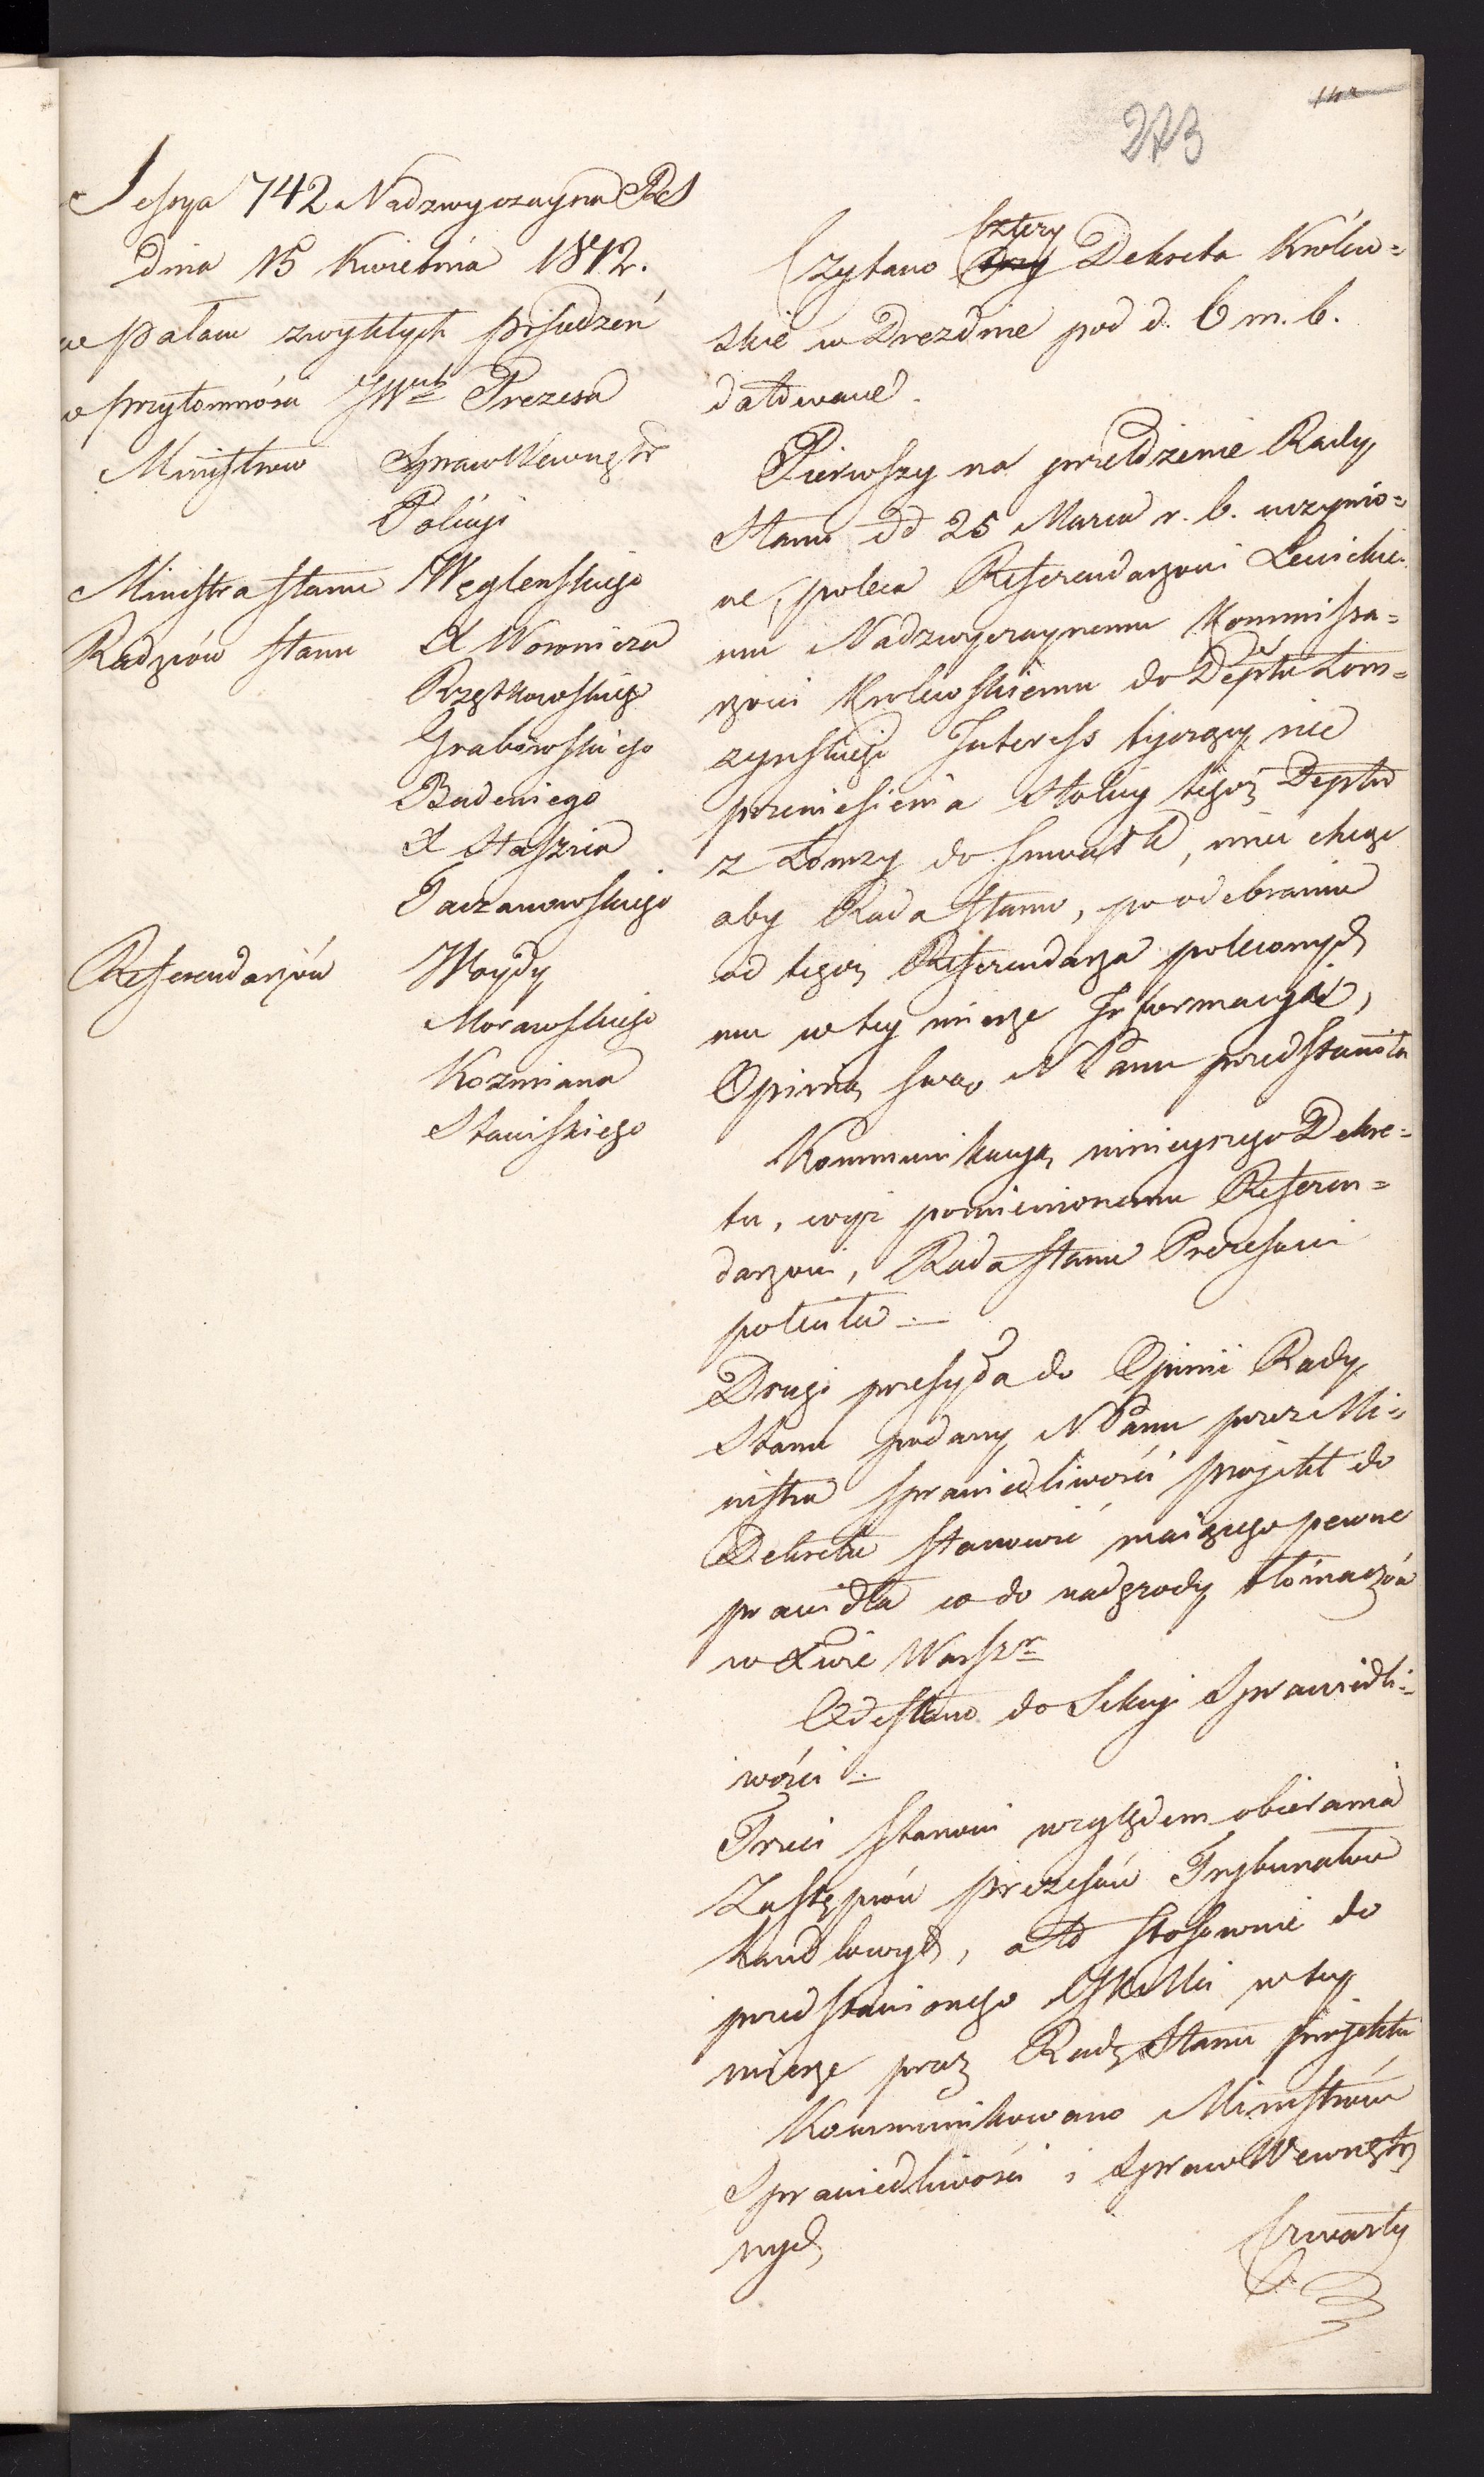 273
Sessya 742 Nadzwyczayna RS
dnia 15 Kwietnia 1812.
w pałacu zwykłych posiedzeń
w przytomności JW Prezesa
Ministrów Spraw Wewnętr
Policyi
Ministra Stanu Węgleńskiego
Radzców Stanu X Woronicza
Rzętkowskiego
Grabowskiego
Badeniego
X Staszica
Taczanowskiego
Referendarzów Woydy
Morawskiego
Kozmiana
Stawiskiego
Cztery
Czytano trzy Dekreta Królew=
skie w Dreznie pod d. 6 m. b.
datowane.
Pierwszy na przełożenie Rady
Stanu dd 25 Marca r. b. uczynio=
ne, poleca Referendarzowi Lewickie
mu Nadzwyczaynemu Kommissa=
rzowi Królewskiemu do Deptu Łom=
żyńskiego Interess tyczący się
przeniesienia Stolicy tegoż Deptu
z Łomży do Suwałk, mieć chcąc
aby Rada Stanu, po odebraniu
od tegoż Referendarza poleconych
mu w tey mierze Informacyi,
Opinią swą NPanu przedstawiła
Kommunikacyą ninieyszego Dekre=
tu, wyż pomienionemu Referen=
darzowi, Rada Stanu Prezesowi
poleciła.—
Drugi przesyła do Opinii Rady
Stanu podany NPanu przez Mi=
nistra Sprawiedliwości projekt do
Dekretu stanowić maiącego pewne
prawidła co do nadgrody tłómaczów
w Xwie Warszm
Odesłano do Sekcyi Sprawiedli=
wości.—
Trzeci stanowi względem obierania
Zastępców prezesów Trybunałów
handlowych, a to stosownie do
przedstawionego JKMci w tey
mierze przez Radę Stanu projektu
Kommunikowano Ministrom
Sprawiedliwości i Spraw Wewnętrz
nych
Czwarty